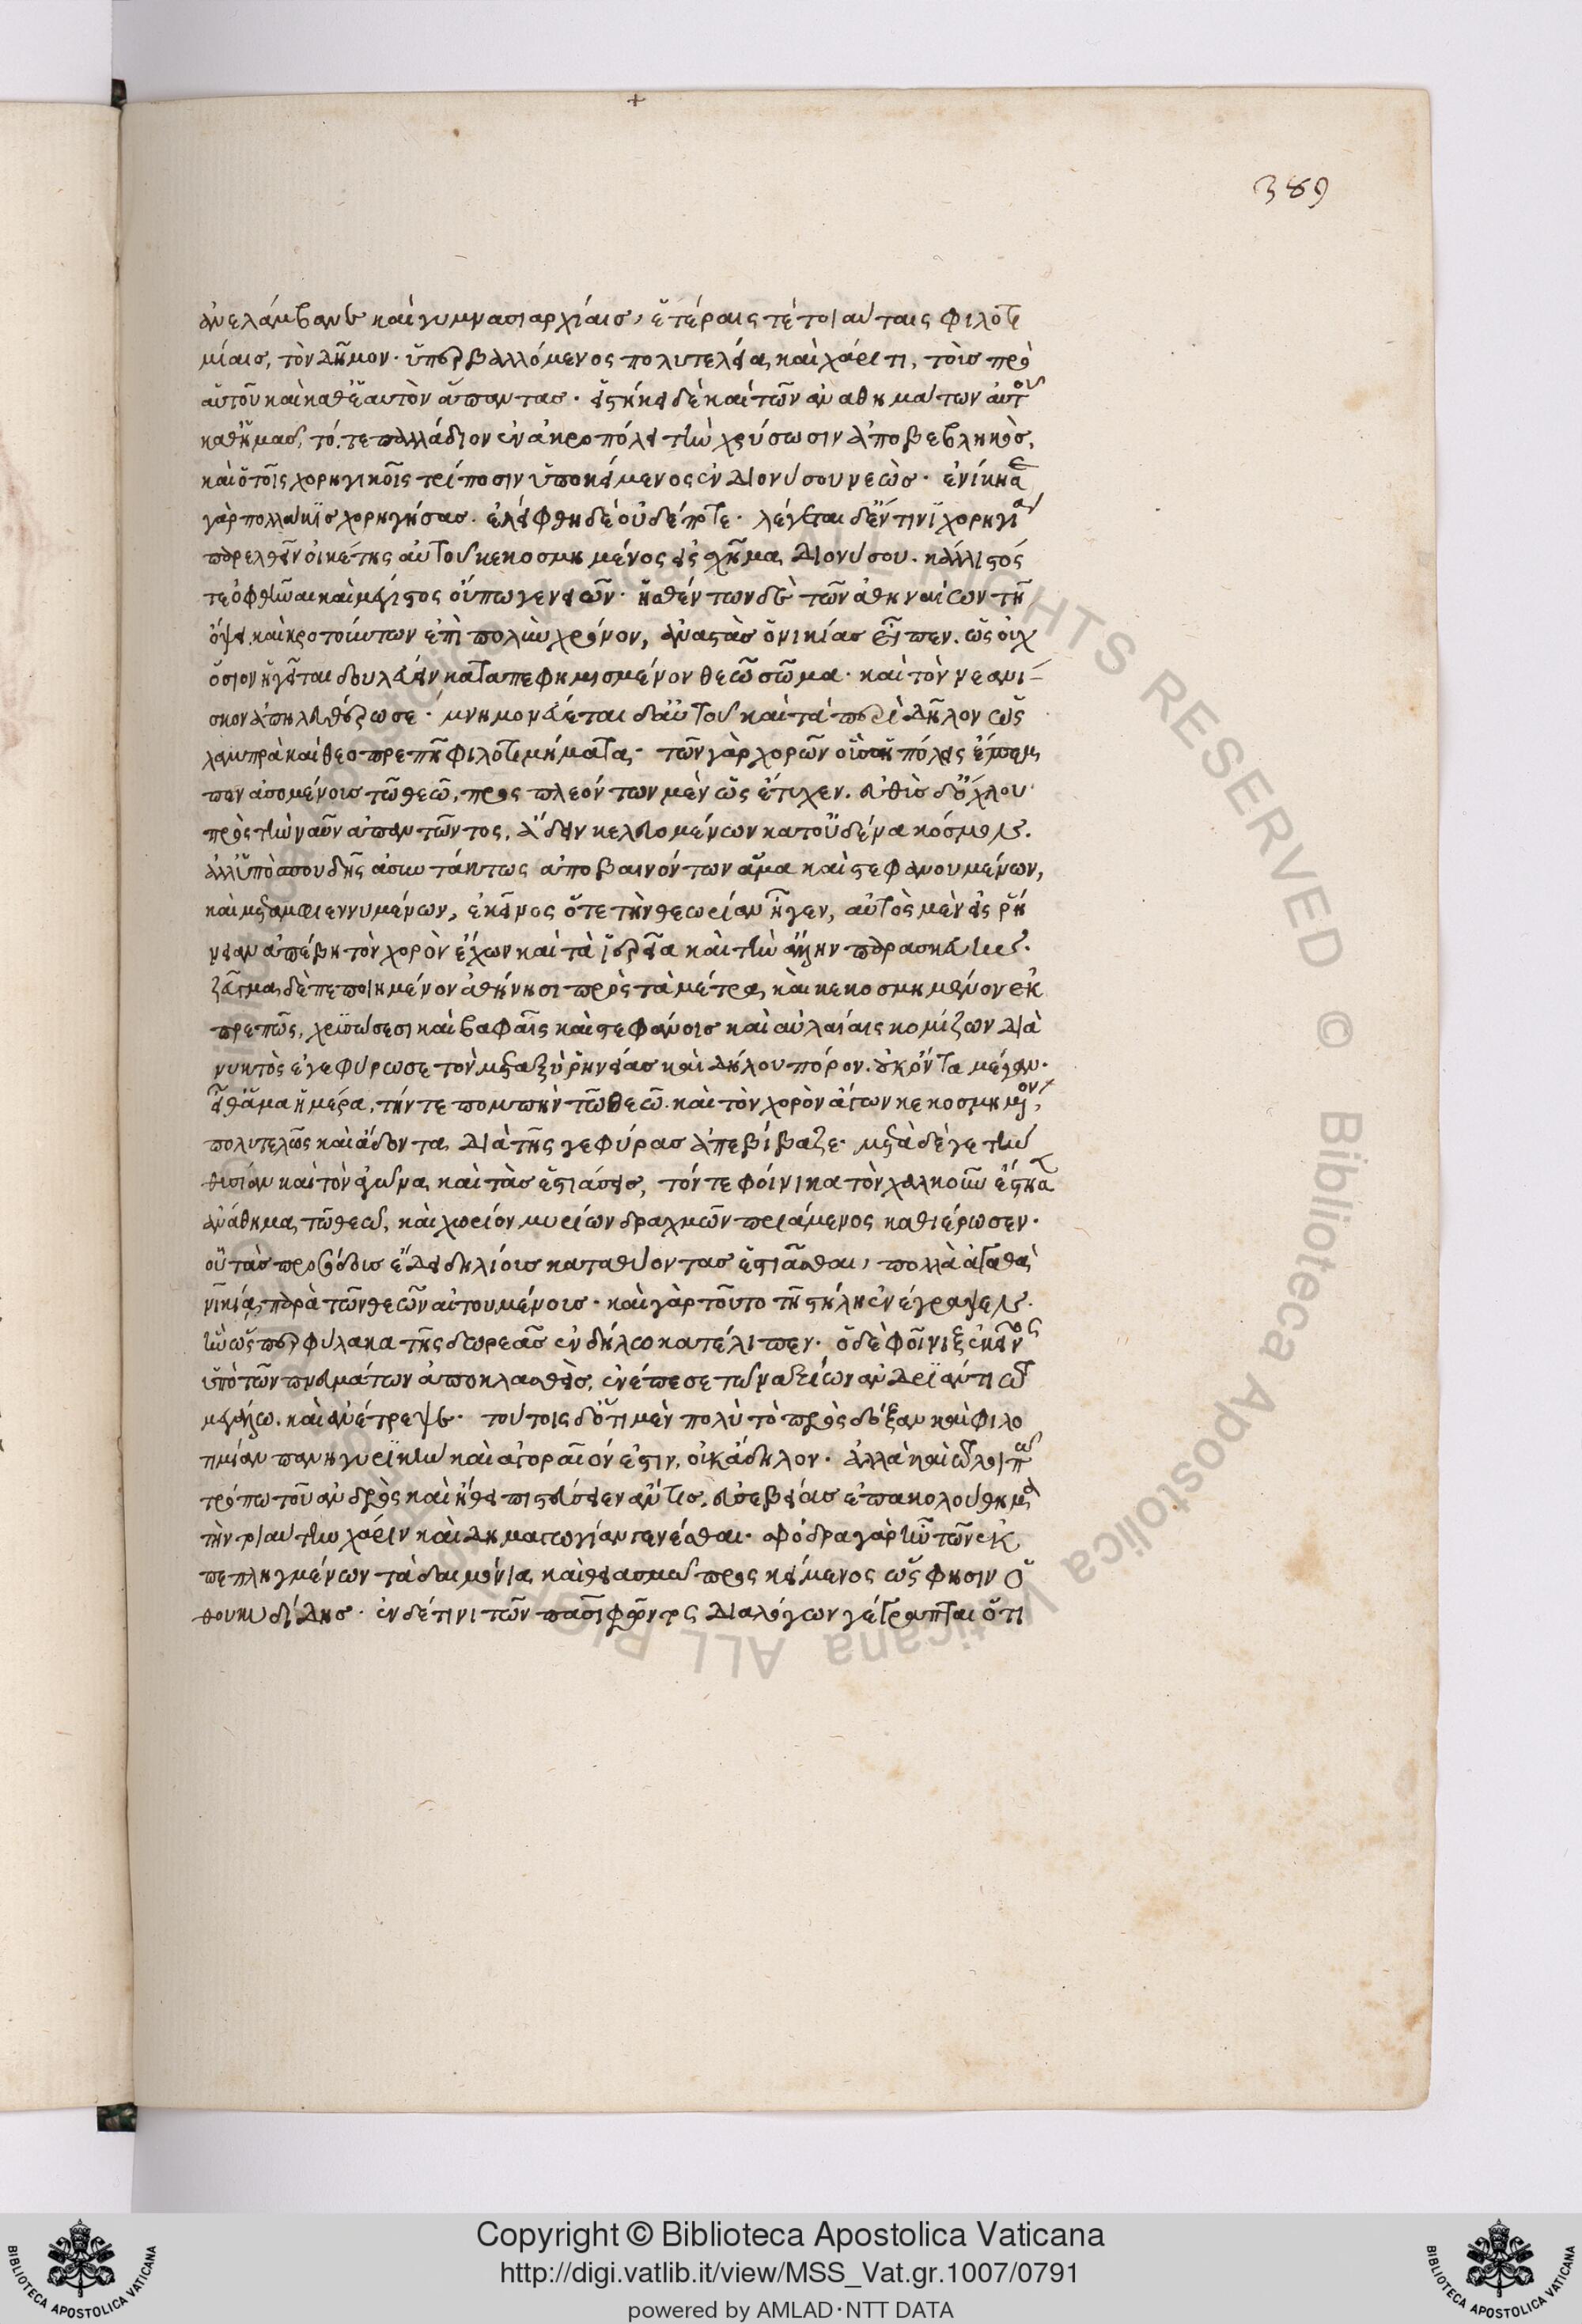 +
389
ἀνελάμβανε καὶ γυμνασιαρχίαις, ἑτέραις τὲ τοιαύταις φιλοτι
μίαις, τὸν δῆμον· ὑπερβαλλόμενος πολυτελεία καὶ χάριτι, τοὺς πρὸ
αὑτοῦ καὶ καθ' ἑαυτὸν ἅπαντας· εἱστήκει δὲ καὶ τῶν ἀναθημάτων αὐτοῦ
καθ' ἡμᾶς, τό, τε παλλάδιον ἐν ἀκροπόλει τὴν χρύσωσιν ἀποβεβληκὸς,
καὶ ὁ τοῖς χορηγικοῖς τρίποσιν ὑποκείμενος ἐν Διονύσου νεὼς· ἐνίκησε
γὰρ πολλάκις χορηγήσας· ἐλείφθη δὲ οὐδέποτε· λέγεται δ' ἔν τινι χορηγία
παρελθεῖν οἰκέτης αὐτοῦ κεκοσμημένος εἰς σχῆμα Διονύσου· κάλλιστός
τε ὀφθῆναι καὶ μέγιστος οὔπω γενειῶν· ἡσθέντων δὲ τῶν ἀθηναίων τῆ
ὄψει καὶ κροτούντων ἐπὶ πολὺν χρόνον, ἀναστὰς ὁ νικίας εἶπεν, ὡς οὐχ
ὅσιον ἡγεῖται δουλεύειν καταπεφημισμένον θεῶ σῶμα· καὶ τὸν νεανί-
σκον ἀπηλευθέρωσε· μνημονεύεται δ' αὐτοῦ καὶ τὰ περὶ Δῆλον ὡς
λαμπρὰ καὶ θεοπρεπῆ φιλοτιμήματα· τῶν γὰρ χορῶν οὓς αἱ πόλεις ἔπεμ
πον ἀσομένους τῶ θεῶ, προσπλεόντων μὲν ὡς ἔτυχεν, εὐθὺς δ' ὄχλου
πρὸς τὴν ναῦν ἀπαντῶντος, ἄδειν κελευομένων κατ' οὐδένα κόσμον.
ἀλλ' ὑπὸ σπουδῆς ἀσυντάκτως ἀποβαινόντων ἅμα καὶ στεφανουμένων,
καὶ μεταμφιεννυμένων, ἐκεῖνος ὅτε τὴν θεωρίαν ἦγεν, αὐτὸς μὲν εἰς ῥή
νειαν ἀπέβη τὸν χορὸν ἔχων καὶ τὰ ἱερεῖα καὶ τὴν ἄλλην παρασκευήν.
ζεῦγμα δὲ πεποιημένον ἀθήνησι πρὸς τὰ μέτρα καὶ κεκοσμημένον ἐκ
πρεπῶς, χρυσώσεσι καὶ βαφαῖς καὶ στεφάνοις καὶ αὐλαίαις κομίζων διὰ
νυκτὸς ἐγεφύρωσε τὸν μεταξὺ ῥηνείας καὶ Δήλου πόρον, οὐκ ὄντα μέγαν·
εἶθ' ἅμα ἡμέρα, τήν τε πομπὴν τῶ θεῶ καὶ τὸν χορὸν ἄγων κεκοσμημένον
πολυτελῶς καὶ ἄδοντα διὰ τῆς γεφύρας ἀπεβίβαζε· μετὰ δέ γε τὴν
θυσίαν καὶ τὸν ἀγῶνα καὶ τὰς ἑστιάσεις, τόν τε φοίνικα τὸν χαλκοῦν ἔστησεν
ἀνάθημα τῶ θεῶ, καὶ χωρίον μυρίων δραχμῶν πριάμενος καθιέρωσεν·
οὗ τὰς προσόδους ἔδει δηλίους καταθύοντας ἑστιᾶσθαι, πολλὰ ἀγαθὰ
νικία παρὰ τῶν θεῶν αἰτουμένους· καὶ γὰρ τοῦτο τῆ στήλη ἐνέγραψεν.
ἣν ὥσπερ φύλακα τῆς δωρεᾶς ἐν δήλω κατέλιπεν· ὁ δὲ φοῖνιξ ἐκεῖνος
ὑπὸ τῶν πνευμάτων ἀποκλασθεὶς, ἐνέπεσε τῶ ναξίων ἀνδριάντι τῶ
μεγάλω, καὶ ἀνέτρεψε· τούτοις δ' ὅτι μὲν πολὺ τὸ πρὸς δόξαν καὶ φιλο
τιμίαν πανηγυρικὴν καὶ ἀγοραῖόν ἐστιν, οὐκ ἄδηλον· ἀλλὰ καὶ τῶ λοιπῶ
τρόπω τοῦ ἀνδρὸς καὶ ἤθει πιστεύσειεν ἄν τις, εὐσεβείας ἐπακολούθημα
τὴν τοιαύτην χάριν καὶ δημαγωγίαν γενέσθαι· σφόδρα γὰρ ἦν τῶν ἐκ
πεπληγμένων τὰ δαιμόνια καὶ θειασμῶ προσκείμενος ὥς φησιν ὁ
θουκυδίδης· ἐν δέ τινι τῶν πασιφῶντος διαλόγων γέγραπται ὅτι
Copyright © Biblioteca Apostolica Vaticana
http://digi.vatlib.it/view/MSS_Vat.gr.1007/0791
powered by AMLAD·NTT DATA